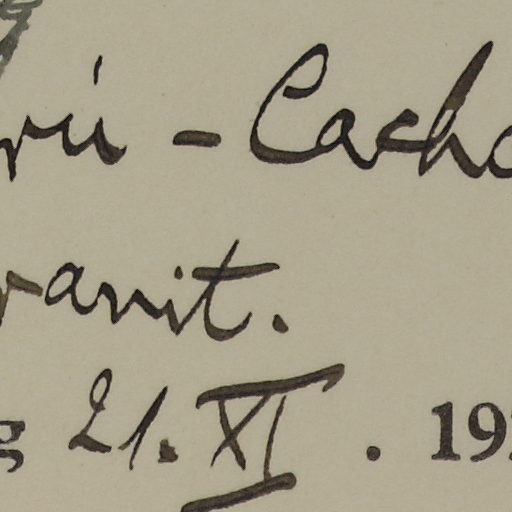 rú - Cacho
ranit.
g 21. XI . 19